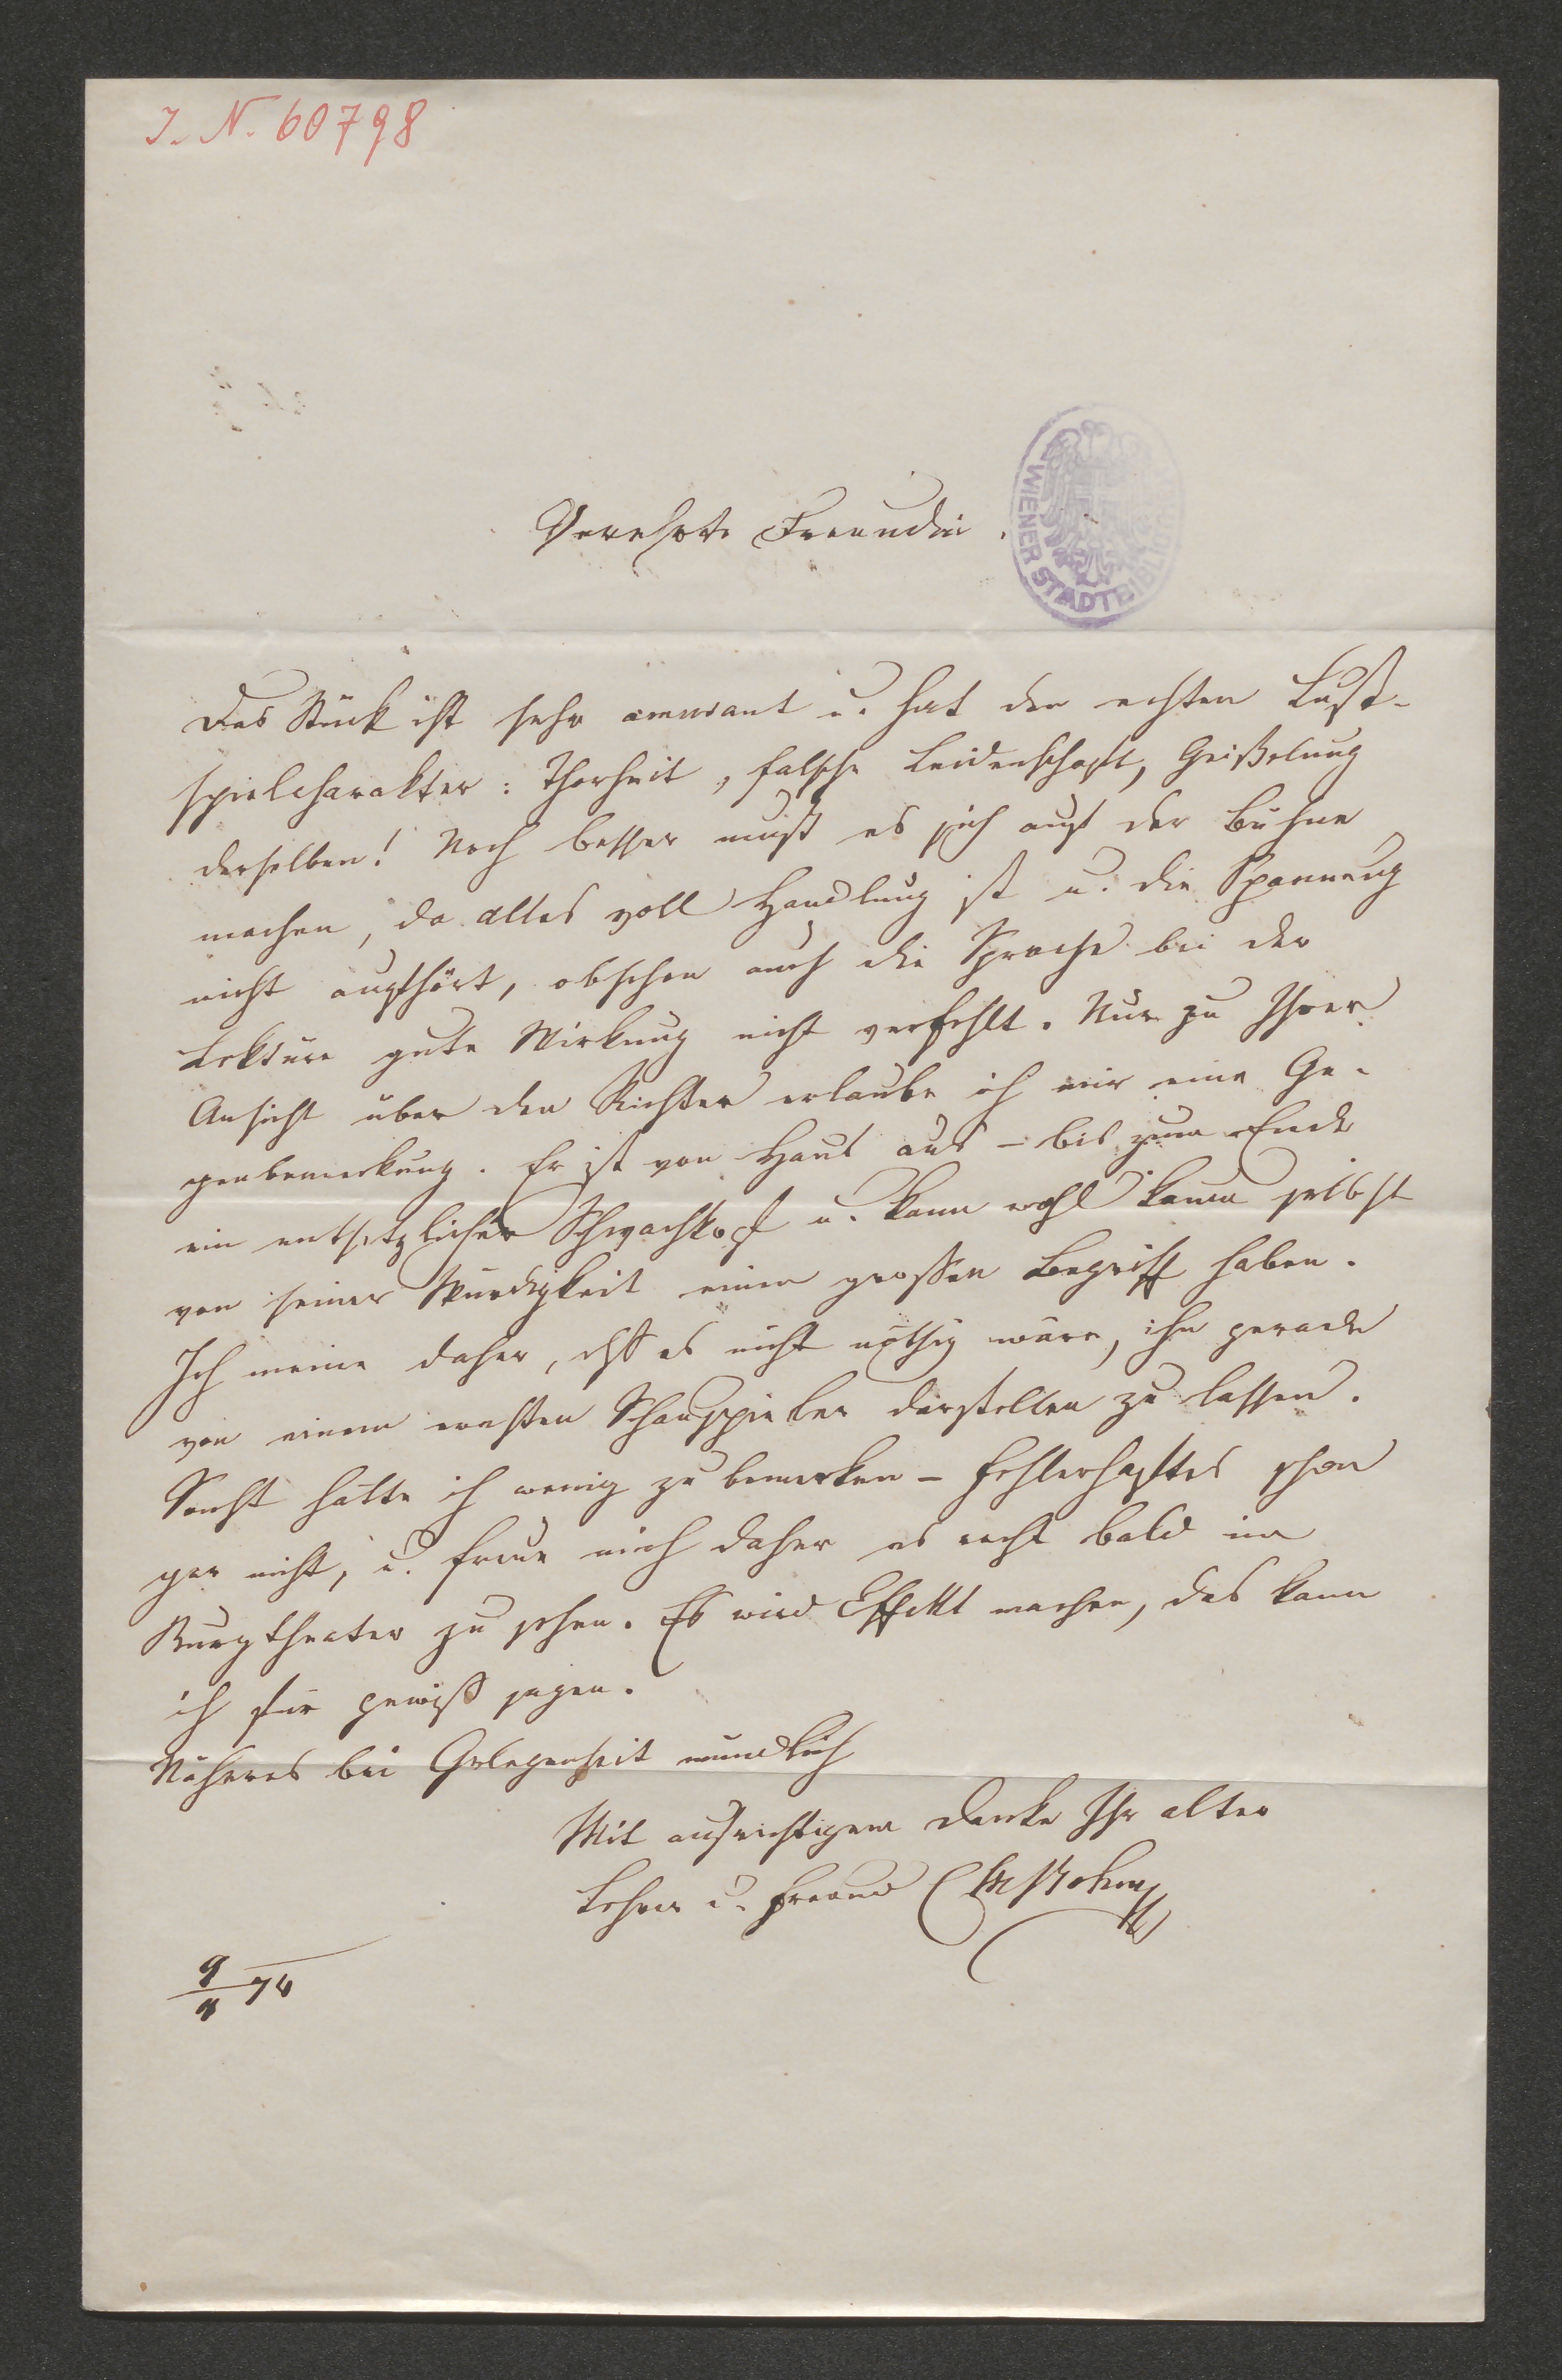 I. N. 60798
Verehrte Freundin.
WIENER STADTBIBLIOTHEK
Das Stück ist sehr amusant u. hat den echten Lust-
spielcharakter: Thorheit, falsche Leidenschaft, Geißelung
derselben! Noch besser muß es sich auf der Bühne
machen, da alles voll Handlung ist u. die Spannung
nicht aufhört, obschon auch die Sprache bei der
Lektüre gute Wirkung nicht verfehlt. Nur zu Ihrer
Ansicht über den Richter erlaube ich mir eine Ge-
genbemerkung. Er ist von Haus aus – bis zum Ende
ein entsetzlicher Schwachkopf u. kann wohl kaum selbst
von seiner Würdigkeit einen großen Begriff haben.
Ich meine daher, dß es nicht nöthig wäre, ihn gerade
von einem ersten Schauspieler darstellen zu lassen.
Sonst hätte ich wenig zu bemerken – Fehlerhaftes schon
gar nicht, u. freue mich daher es recht bald im
Burgtheater zu sehen. Es wird Effekt machen, das kann
ich für gewiß sagen.
Näheres bei Gelegenheit mündlich
Mit aufrichtigem Danke Ihr alter
Lehrer u. Freund